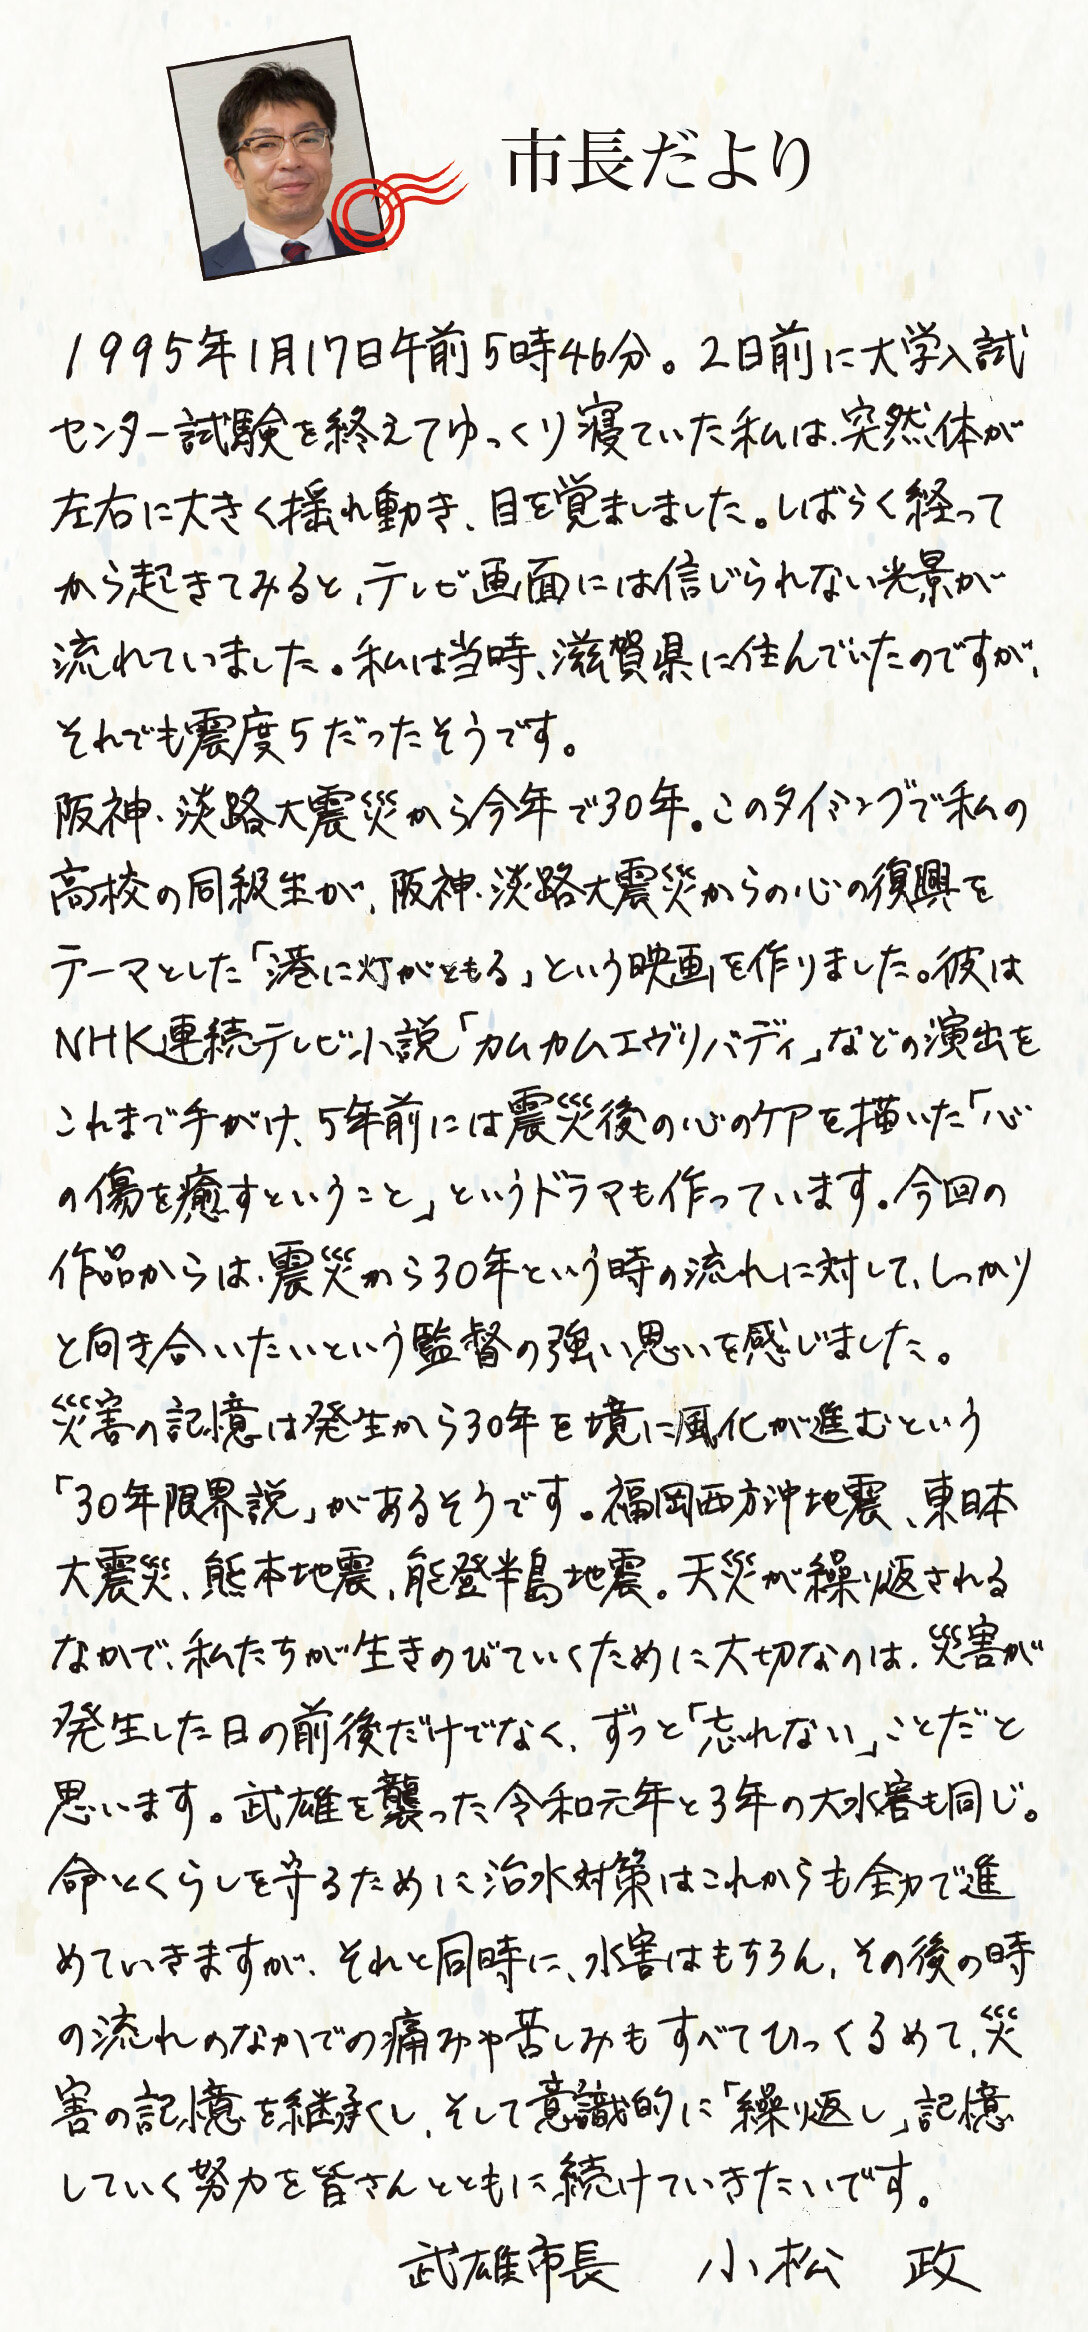 市長だより
1995年1月17日午前5時46分。2日前に大学入試
センター試験を終えてゆっくり寝ていた私は、突然体が
左右に大きく揺れ動き、目を覚ましました。しばらく経って
から起きてみると、テレビ画面には信じられない光景が
流れていました。私は当時、滋賀県に住んでいたのですが、
それでも震度5だったそうです。
阪神・淡路大震災から今年で30年。このタイミングで私の
高校の同級生が、阪神・淡路大震災からの心の復興を
テーマとした「港に灯がともる」という映画を作りました。彼は
NHK連続テレビ小説「カムカムエヴリバディ」などの演出を
これまで手がけ、5年前には震災後の心のケアを描いた「心
の傷を癒すということ」というドラマも作っています。今回の
作品からは、震災から30年という時の流れに対して、しっかり
と向き合いたいという監督の強い思いを感じました。
災害の記憶は発生から30年を境に風化が進むという
「30年限界説」があるそうです。福岡西方沖地震、東日本
大震災、熊本地震、能登半島地震。天災が繰り返される
なかで、私たちが生きのびていくために大切なのは、災害が
発生した日の前後だけでなく、ずっと「忘れない」ことだと
思います。武雄を襲った令和元年と3年の大水害も同じ。
命とくらしを守るために治水対策はこれからも全力で進
めていきますが、それと同時に、水害はもちろん、その後の時
の流れのなかでの痛みや苦しみもすべてひっくるめて、災
害の記憶を継承し、そして意識的に「繰り返し」記憶
していく努力を皆さんとともに続けていきたいです。
武雄市長 小松 政